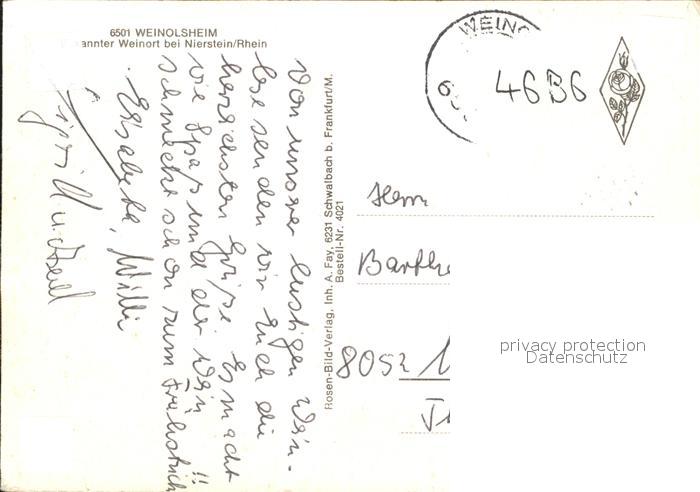 6501 WEINOLSHEIM
annter Weinort bei Nierstein/Rhein
Von unserer lustigen Wein-
lese senden wir Euch die
herzlichsten Grüße. Es macht
viel Spaß und der Wein
schmeckt schon zum Frühstück!!
Elisabeth, Willi
u. Axel
Rosen-Bild-Verlag, Inh. A. Fay, 6231 Schwalbach b. Frankfurt/M.
Bestell-Nr. 4021
WEINO
6
46B6
Herrn
Barthe
8052 1
privacy protection
Datenschutz